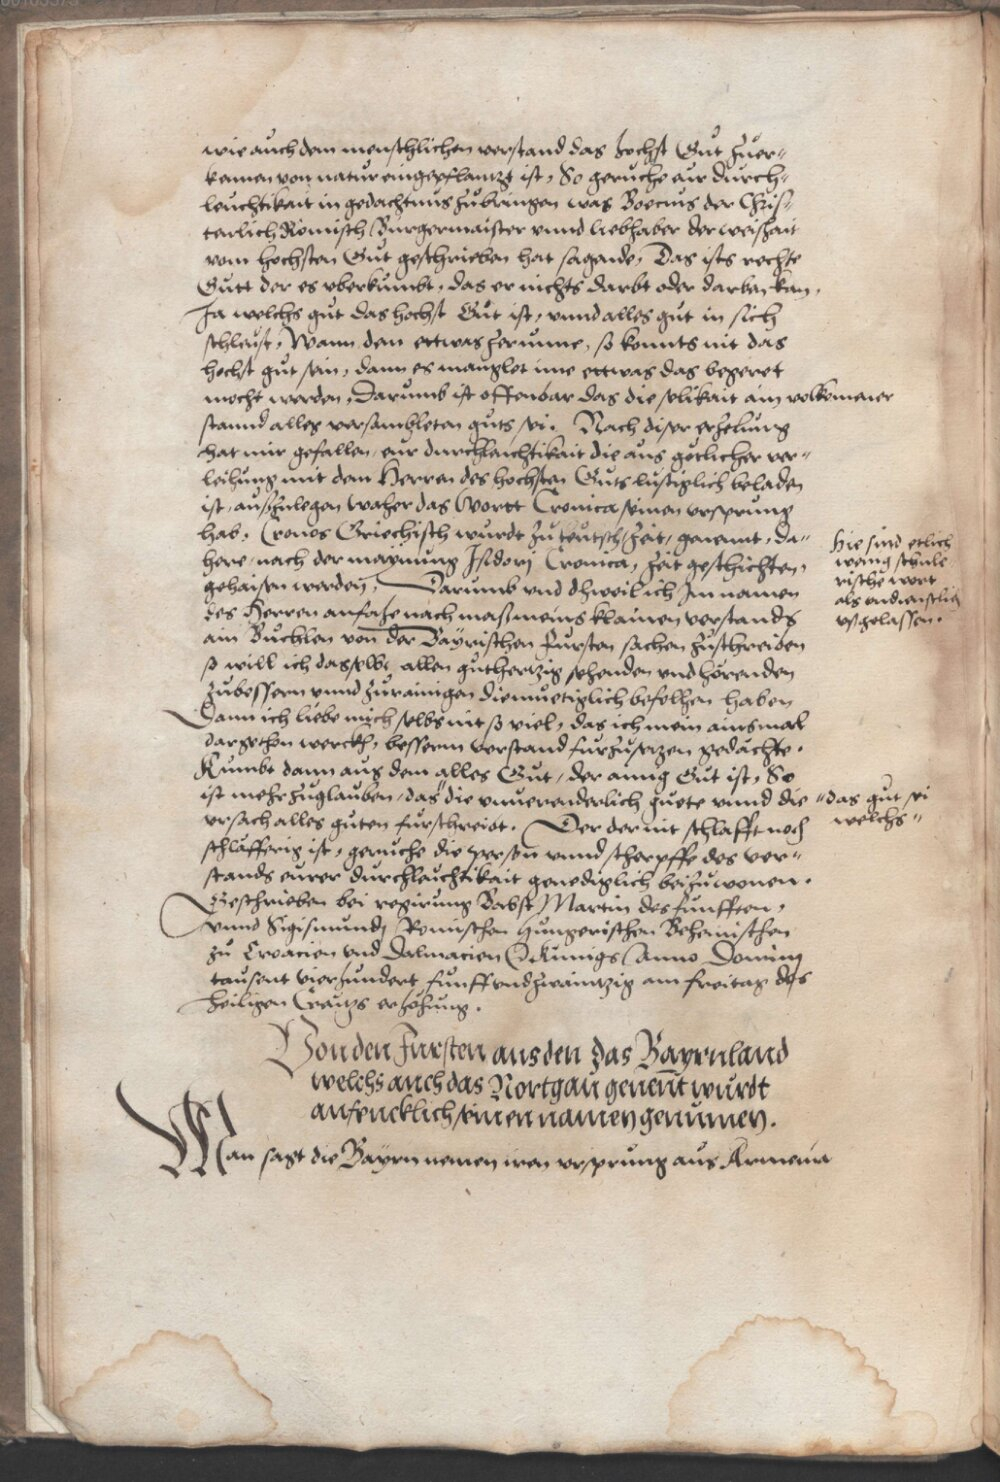 wie auch dem menschlichen verstand das hochst Gut zuer-
kennen von natur eingepflantzt ist, So geruche eur durch-
leuchtikait in gedachtnus zubringen was Boecius der Chris-
tenlich Römisch Burgermaister vnnd liebhaber der weishait
vom hochsten Gut geschrieben hat sagende, Das ists rechte
Gutt der es vberkumbt, das er nichts darbt oder darben kan,
Ja welchs gut das hochst Gut ist, vnnd alles gut in sich
schleust, Wann dem ettwas zerunne, so konnts nit das
hochst gut sein, dann es manglet ime ettwas das begeret
mocht werden, Darumb ist offenbar das die selikait ain volkomener
stannd alles versambleten guts sei. Nach diser erzelung
hat mir gefallen eur durchleuchtikait die aus gotlicher ver-
leihung mit dem Herren des hochsten Guts lustiglich beladen
ist, auszulegen woher das Wortt Cronica seinen vrsprung
hab, Cronos Griechisch wurdt zu teutsch, Zeit, genennt, da-
here, nach der maynung Isidori Cronica, Zeit geschichten,
gehaisen werden, Darumb vnd dhweil ich Im namen
des Herren anfahe nach mas meins klainen verstands
ain Buchlen von der Bayrischen Fursten sachen zuschreiben
so will ich dasselb, allen guthertzig sehenden vnd hörenden
zubessern vnnd zurainigen diemuetiglich befolhen haben
Dann ich liebe mich selbs nit so viel, das ich mein ainsmal
dargethon werckh, besserm verstand furzusetzen gedächte.
Kumbt dann aus dem alles Gut, der ainig Gut ist, So
ist mehr zuglauben, das " die vnuerenderlich guete vnnd die
vrsach alles guten furschreibt. Der der nit schlafft noch
schläfferig ist, geruche die person vnnd scherpffe des ver-
stands eurer durchleuchtikait genediglich beizuwonen.
Geschrieben bei regirung Babst Martin des funfften,
vnnd Sigismundj Römischen Hungerischen Behemischen
zu Croacien vnd Dalmacien &c Kunigs Anno Domini
tausent vierhundert funffundzwaintzig am freitag des
heiligen Creutzs erhohung.
Hie sind etlich
wenig schule
rische wort
als vndienstlich
vsgelassen.
" das gut sei
welchs "
Von den Fursten aus den das Bayrnland
welchs auch das Nortgau genent wurdt
anfencklich seinen namen genumen.
Man sagt die Bayrn nemen iren vrsprung aus Armenia